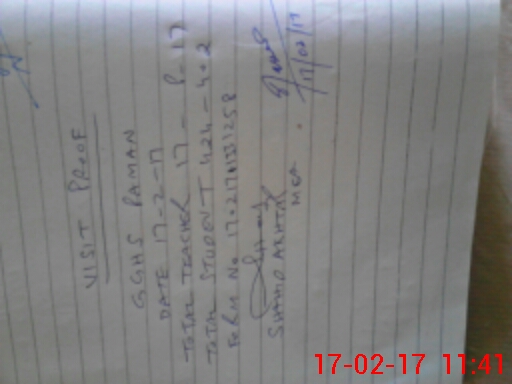 VISIT PROOF
GGHS PAMAN
DATE 17-2-17
TOTAL TEACHER 17 - P. 17
TOTAL STUDENT 424 - 402
FORM No
SHAHID AKHTAR
MEA
17/02/17
17-02-17 11:41